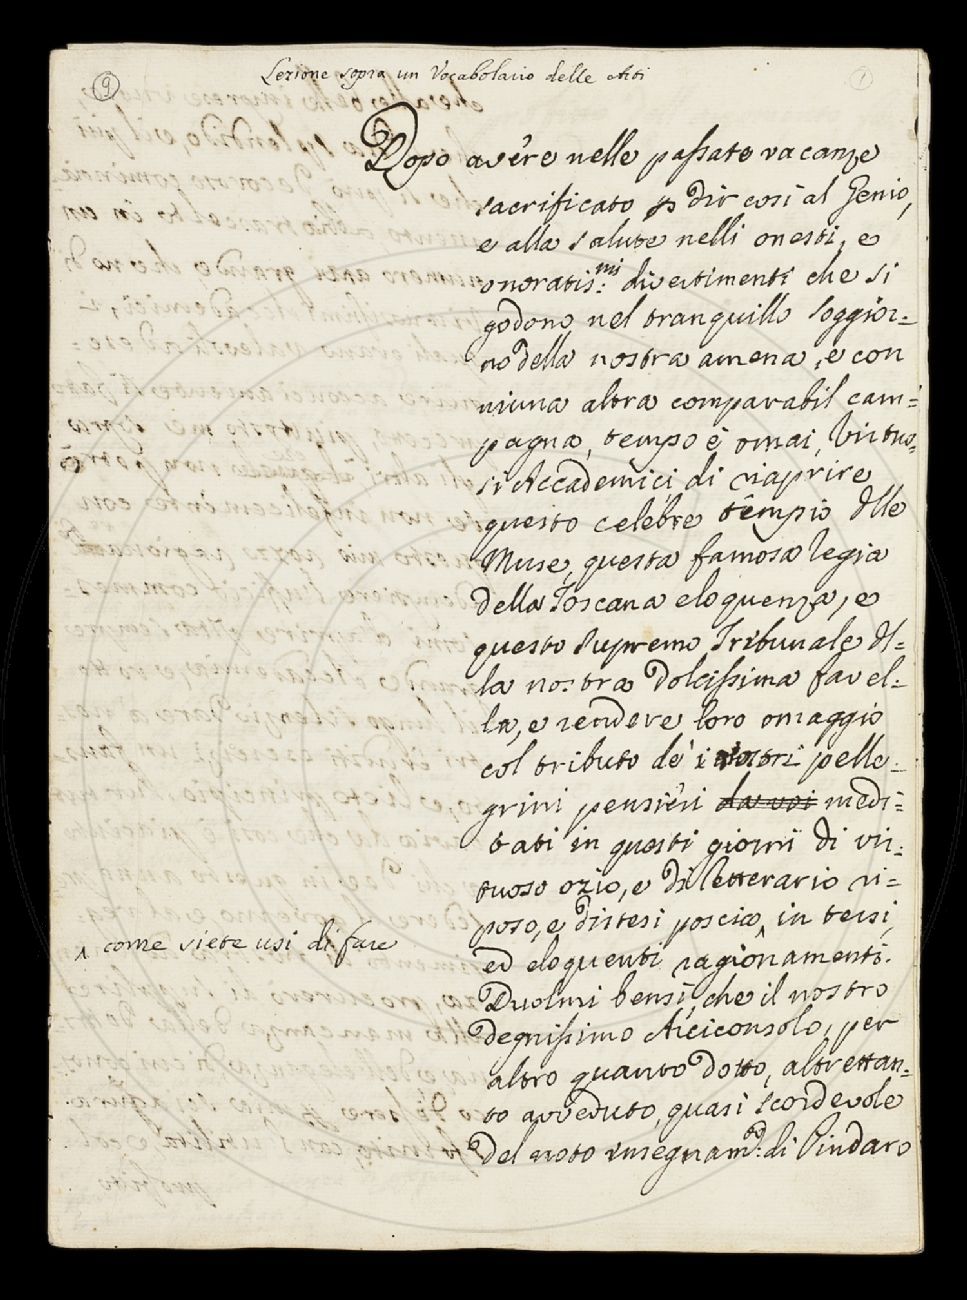 9
Lezione sopra un Vocabolario delle Arti
1
Dopo avére nelle passate vacanze
sacrificato p dir così al Genio,
e alla salute nelli onesti, e
onoratis:mi divertimenti che si
godono nel tranquillo soggior=
no della nostra amena, e con
niuna altra comparabil cam=
pagna, tempo è omai, Virtuo=
si Accademici di riaprire
questo celebre tempio dlle
Muse, questa famosa legia
della Toscana eloquenza, e
questo supremo Tribunale dl=
la nostra dolcissima favel=
la, e rendere loro omaggio
col tributo de' i vostri pelle=
grini pensieri da voi medi=
tati in questi giorni di vir=
tuoso ozio, e di letterario ri=
poso, e distesi poscia, in tersi,
^ come siete usi di fare
ed eloquenti ragionamenti.
Duolmi bensì, che il nostro
degnissimo Arciconsolo, per
altro quanto dotto, altrettan=
to avveduto, quasi scordevole
del noto insegnam:to di Pindaro